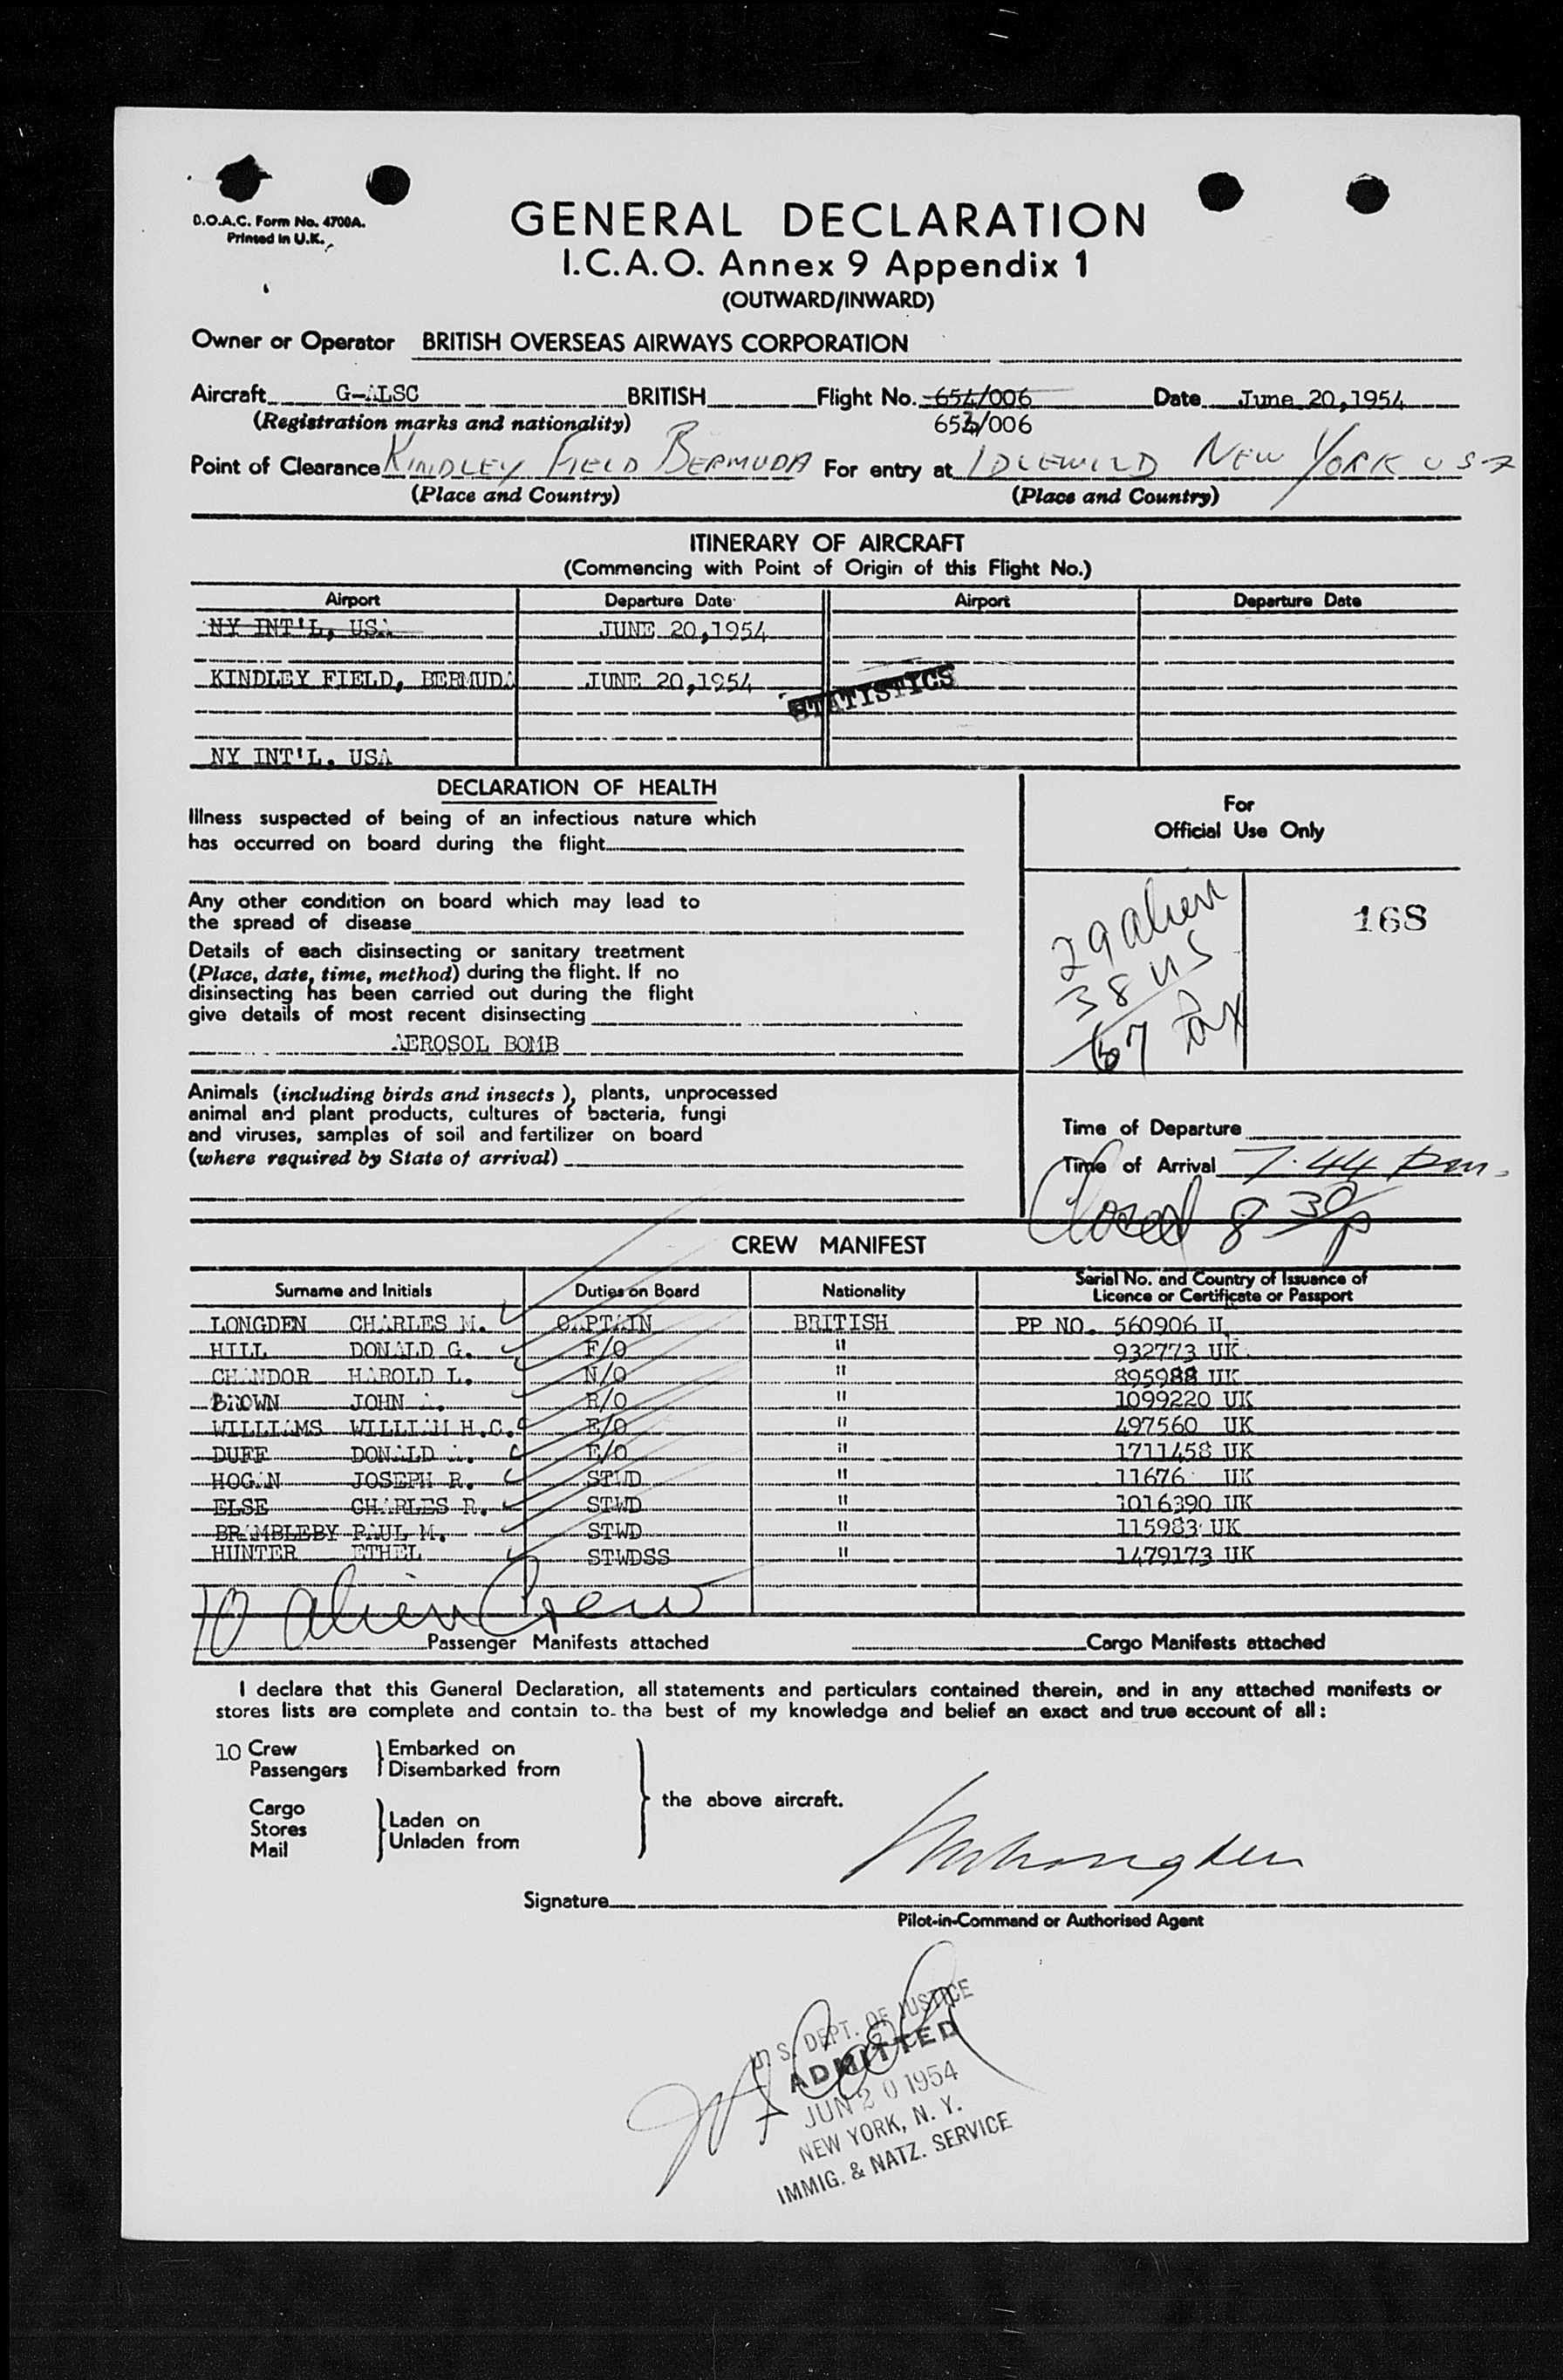 B.O.A.C. Form No. 4700A.
Printed in U.K.
GENERAL DECLARATION
I.C.A.O. Annex 9 Appendix 1
(OUTWARD/INWARD)
Owner or Operator BRITISH OVERSEAS AIRWAYS CORPORATION
Aircraft G-ALSC BRITISH Flight No. 654/006 Date June 20,1954
(Registration marks and nationality) 653/006
Point of Clearance KINDLEY FIELD BERMUDA For entry at IDLEWILD NEW YORK USA
(Place and Country) (Place and Country)
ITINERARY OF AIRCRAFT
(Commencing with Point of Origin of this Flight No.)
Airport Departure Date Airport Departure Date
NY INT'L, USA JUNE 20,1954
KINDLEY FIELD, BERMUDA JUNE 20,1954
STATISTICS
NY INT'L. USA
DECLARATION OF HEALTH
Illness suspected of being of an infectious nature which
has occurred on board during the flight
Any other condition on board which may lead to
the spread of disease
Details of each disinsecting or sanitary treatment
(Place, date, time, method) during the flight. If no
disinsecting has been carried out during the flight
give details of most recent disinsecting
AEROSOL BOMB
Animals (including birds and insects), plants, unprocessed
animal and plant products, cultures of bacteria, fungi
and viruses, samples of soil and fertilizer on board
(where required by State of arrival)
For
Official Use Only
29 alien
38 US
67
168
Time of Departure
Time of Arrival 7.44 pm.
Closed 8 30 p
CREW MANIFEST
Surname and Initials Duties on Board Nationality Serial No. and Country of Issuance of
Licence or Certificate or Passport
LONGDEN CHARLES M. CAPTAIN BRITISH PP NO. 560906 U
HILL DONALD G. F/O " 932773 UK
CHANDOR HAROLD L. N/O " 895988 UK
BROWN JOHN A. R/O " 1099220 UK
WILLIAMS WILLIAM H.C. E/O " 497560 UK
DUFF DONALD A. E/O " 1711458 UK
HOGAN JOSEPH R. STWD " 11676 UK
ELSE CHARLES R. STWD " 1016390 UK
BRAMBLEBY PAUL M. STWD " 115983 UK
HUNTER ETHEL STWDSS " 1479173 UK
10 alien Crew
Passenger Manifests attached Cargo Manifests attached
I declare that this General Declaration, all statements and particulars contained therein, and in any attached manifests or
stores lists are complete and contain to the best of my knowledge and belief an exact and true account of all:
10 Crew
Passengers
Embarked on
Disembarked from
Cargo
Stores
Mail
Laden on
Unladen from
the above aircraft.
Signature
Pilot-in-Command or Authorised Agent
U. S. DEPT. OF JUSTICE
ADMITTED
JUN 20 1954
NEW YORK, N. Y.
IMMIG. & NATZ. SERVICE